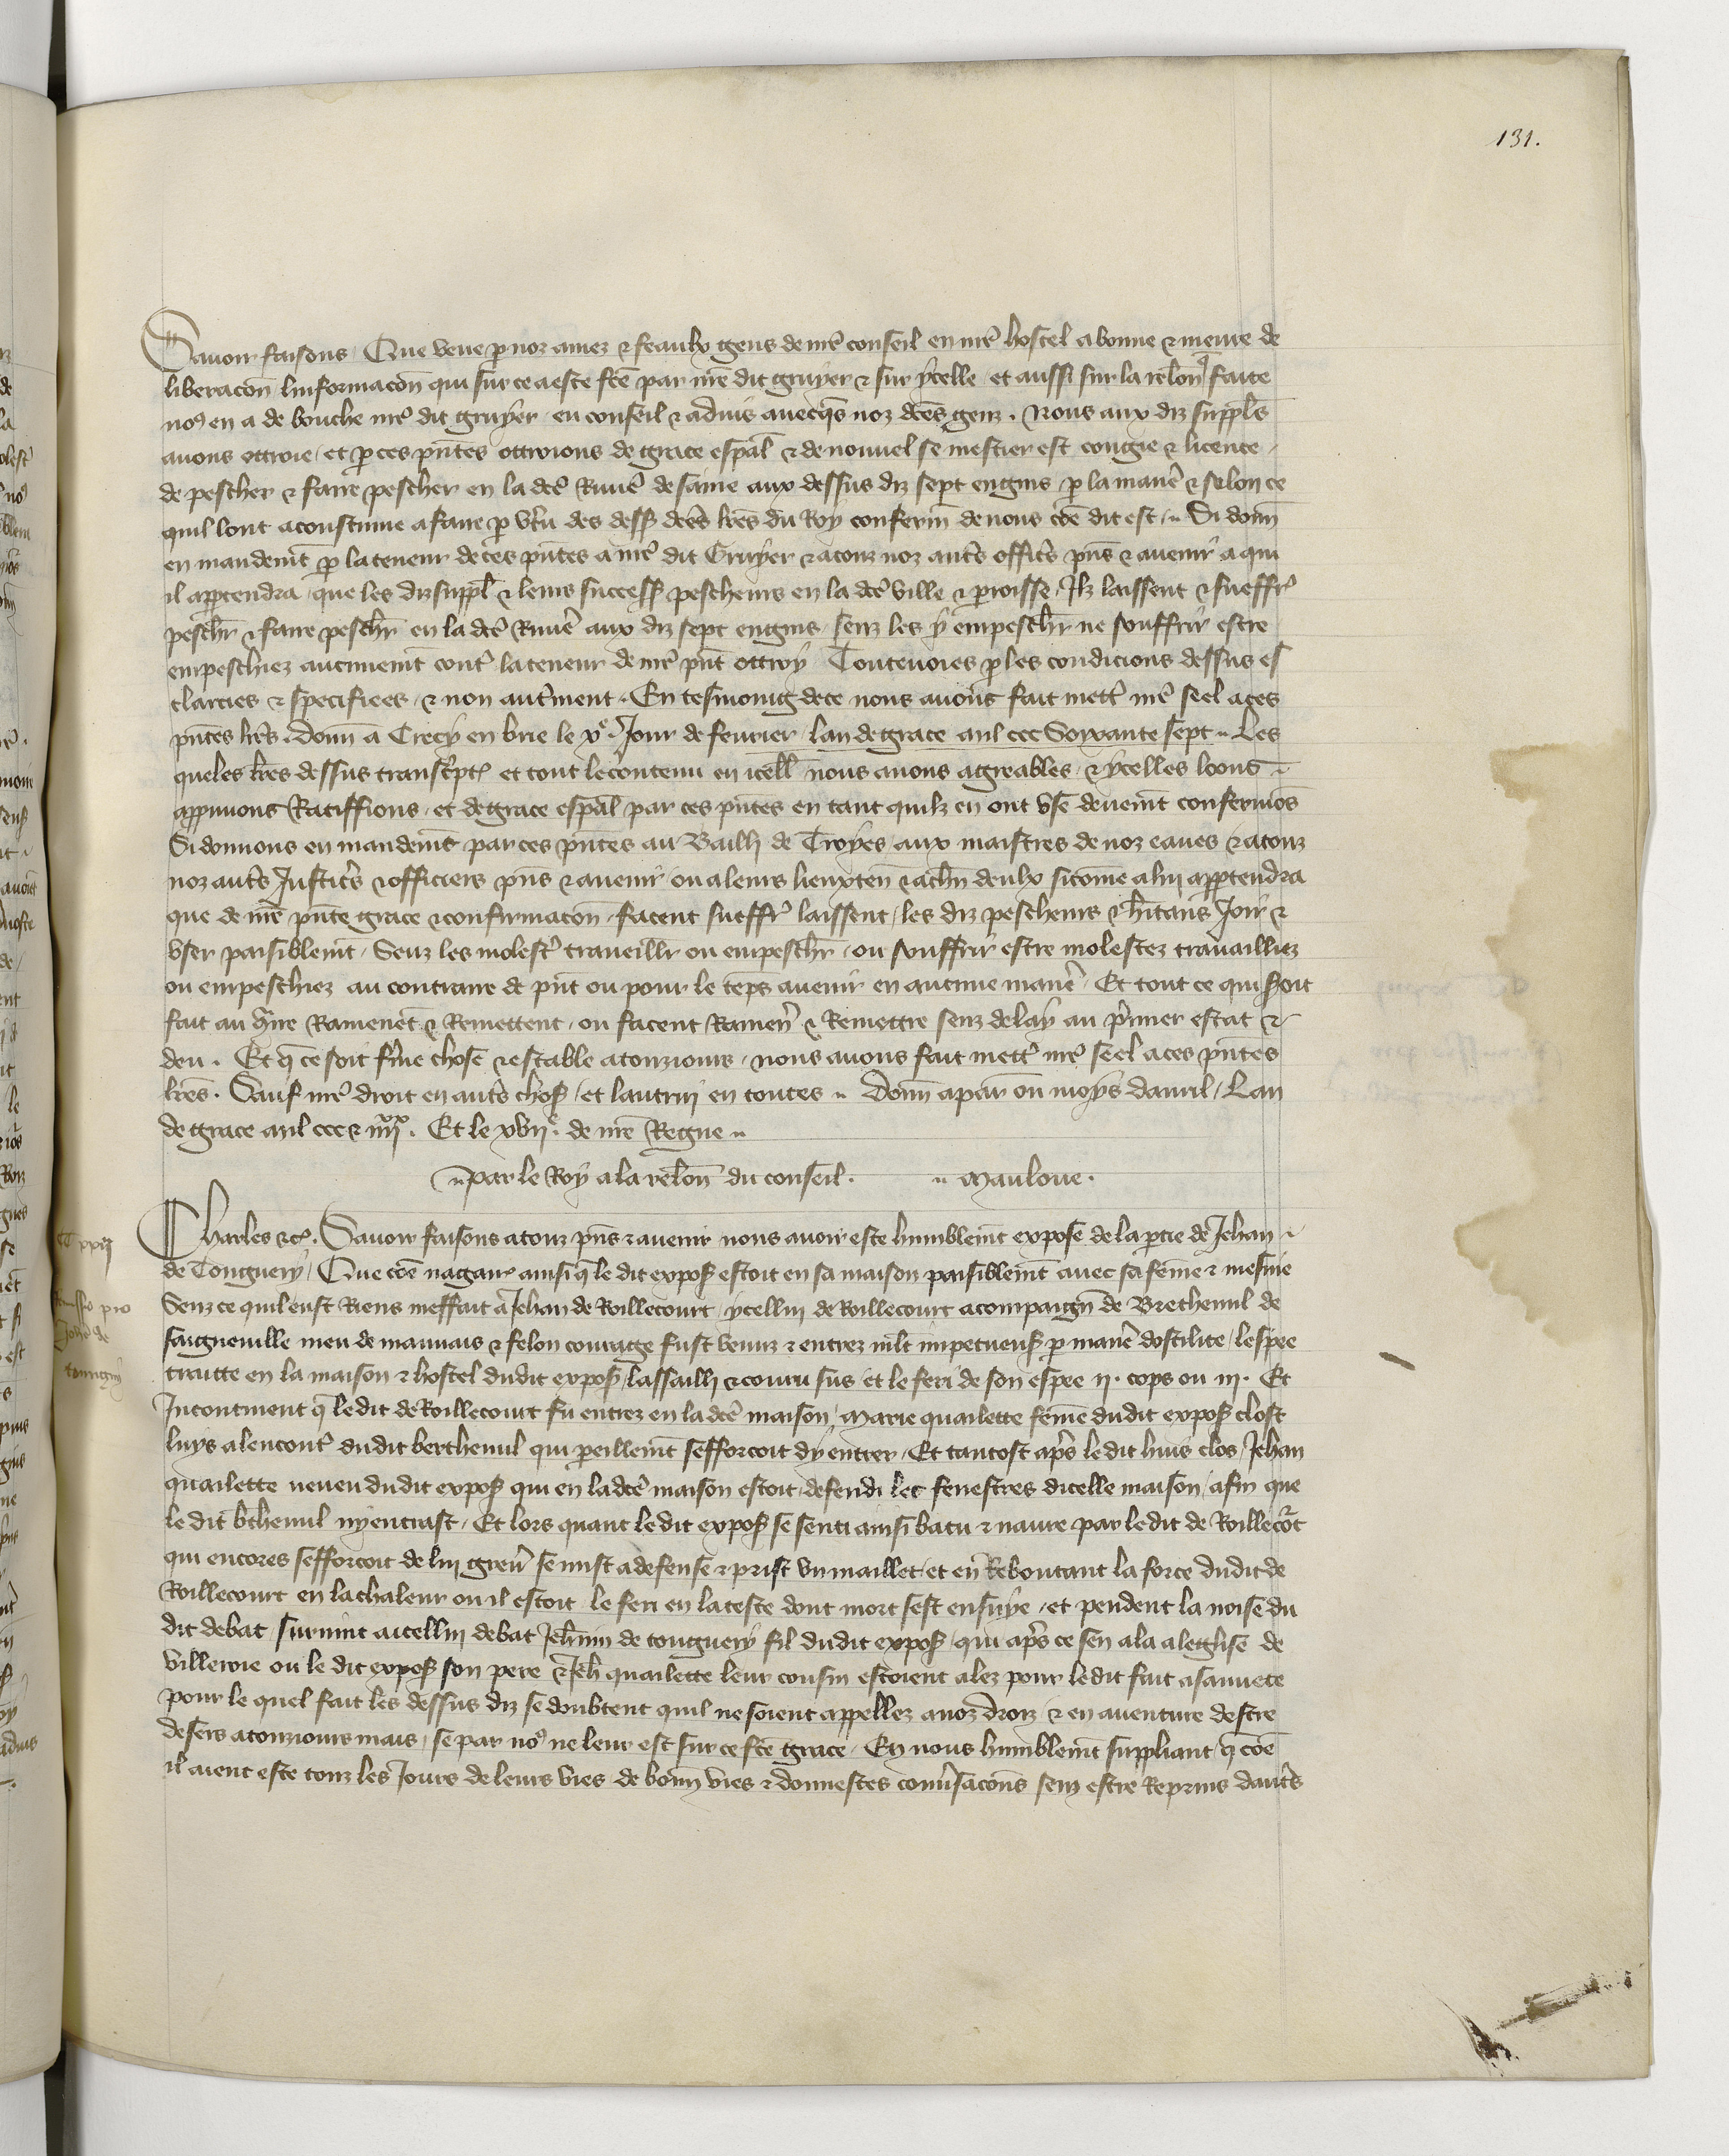 131.
Savoir faisons Que veue p noz amez & feaulx gens de nrē conseil en nrē hostel a bonne & meure de
liberacōn linformacōn qui sur ce a este fcē par nrē dit gruyer & sur ycelle et aussi sur la relōn q faite
noꝰ en a de bouche nrē dit gruyer eu conseil & advis avecqs noz dces genz. Nous aux diz supplēs
avons ottroie et p ces pntes ottroions de grace espāl & de nouvel se mestier est congie & licence
de pescher & faire pescher en la dcē Rivīē de saine aux dessus diz sept engins p la manīē & selon ce
quil lont acoustume a faire p vtu des dess dces lres du Roy conferm de nous cōe dit est. Si donn
en mandemt p la teneur de ces pntes a nrē dit Gruyer & a touz noz autrs officrs pns & avenir a qui
il appartendra que les diz suppl & leurs success pescheurs en la dcē ville & proisse Ilz laissent & sueffr
peschr & faire peschr en la dcē Rivīē aux diz sept engins senz les y empeschr ne souffrir estre
empeschiez aucunemt contr la teneur de nrē pnt ottroy Toutevoies p les condicions dessus es
clarcies & specifiees & non autrment. En tesmoing de ce nous avons fait mettr nrē seel a ces
pntes lres. donn a Crecy en brie le xe. Jour de fevrier lan de grace mil ccc Soixante sept Les
queles lres dessus transcptes et tout le contenu en icell nous avons agreables & ycelles loons
appvons Ratiffions et de grace espāl par ces pntes en tant quilz en ont use deuemt confermōs
Si donnons en mandemt par ces pntes au Bailli de Troyes aux maistres de noz eaues & a touz
noz autrs Justicrs & officiers pns & avenir ou a leurs lieuxten & a chun deulx sicomme a lui appartendra
que de nrē pnte grace & confirmacōn facent sueffr laissent les diz pescheurs & hitans Joir &
user paisiblemt Senz les molestr traveillr ou empeschr ou souffrir estre molestez travailliez
ou empeschiez au contraire de pnt ou pour le temps avenir en aucune manīē Et tout ce qui seroit
fait au 9tire Ramenēt & Remettent ou facent Ramenr & Remettre senz delay au prmier estat &
deu. Et q ce soit ferme chose & estable a touziours nous avons fait mettr nrē seel a ces pntes
lres. Sauf nrē droit en autrs choses et lautrui en toutes Donn a paris ou moys davril Lan
de grace mil ccc & iiijxx. Et le xvije. de nrē Regne
par le Roy a la relōn du conseil. Mauloue.
Charles &c. Savoir faisons a touz pns & avenir nous avoir este humblemt expose de la ptie de Jehan
de Tonguery Que cōe nagair ainsi q le dit expos estoit en sa maison paisiblemt avec sa femme & mesnie
Senz ce quil eust Riens meffait a Jehan de Roillecourt ycellui de Roillecourt acompaign de Brethemil de
saigneville meu de mauvais & felon courage fust venuz & entrez mlt impetueus p manīē dostilite lespee
traitte en la maison & hostel dudit expos lassailli & couru sus et le feri de son espee ij. cops ou iij. Et
Incontinent q le dit de Roillecourt fu entrez en la dcē maison Marie quailette femme dudit expos clost
luys alencontr dudit berthemil qui peillemt sefforcoit dy entrer Et tantost aps le dit huis clos Jehan
quailette neveu dudit expos qui en la dcē maison estoit defendi les fenestres dicelle maison afin que
le dit bthemil ny entrast Et lors quant le dit expos se senti ainsi batu & navre par le dit de Roillecort
qui encores sefforcoit de lui grever se mist a defense & prist un maillet et en Reboutant la force dudit de
Roillecourt en la chaleur ou il estoit le feri en la teste dont mort sest ensuye et pendent la noise du
dit debat survint a icellui debat Jehnnin de tonguery fil dudit expos qui aps ce sen ala a leglise de
villeroie ou le dit expos son pere & Jeh quailette leur cousin estoient alez pour le dit fait a sauvete
pour le quel fait les dessus diz se doubtent quil ne soient appellez a noz droiz & en aventure destre
desers a touziours mais se par noꝰ ne leur est sur ce fcē grace En nous humblemt suppliant q cōe
il aient este touz les Jours de leurs vies de bonn vies & donnestes conversacōns senz estre Reprins dautrs
remissio pro
Johe de